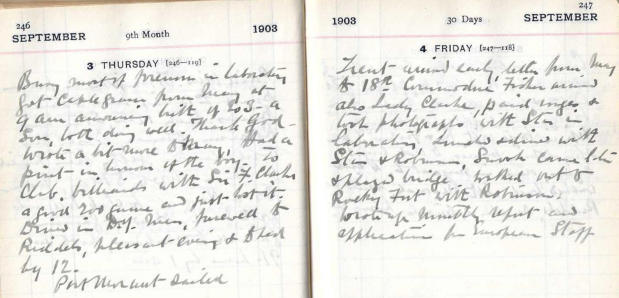 246
SEPTEMBER
9th Month
1903
3 THURSDAY [246—119]
Busy most of forenoon in laboratory
got Cablegram from May at
9 am announcing birth of a
Son, both doing well. Thank God.
wrote a bit more to May, Had a
pint in honour of the boy. to
Club. billiards with Sir F Clarke
a good 200 game and just lost it.
Dined in
Riddels, pleasant evening & to bed
by 12.
Port Morant sailed
247
1903
30 Days
SEPTEMBER
4 FRIDAY [247—118]
Trent arrived early, letter from May
to 18th. Commodore Fisher arrived
also Lady Clarke, paid wages, &
took photographs with Stan in
laboratory, lunched & dined with
Stan & Robinson, came later
& played bridge. walked out to
Rocky Fort with Robinson.
wrote up monthly report and
application for European Staff